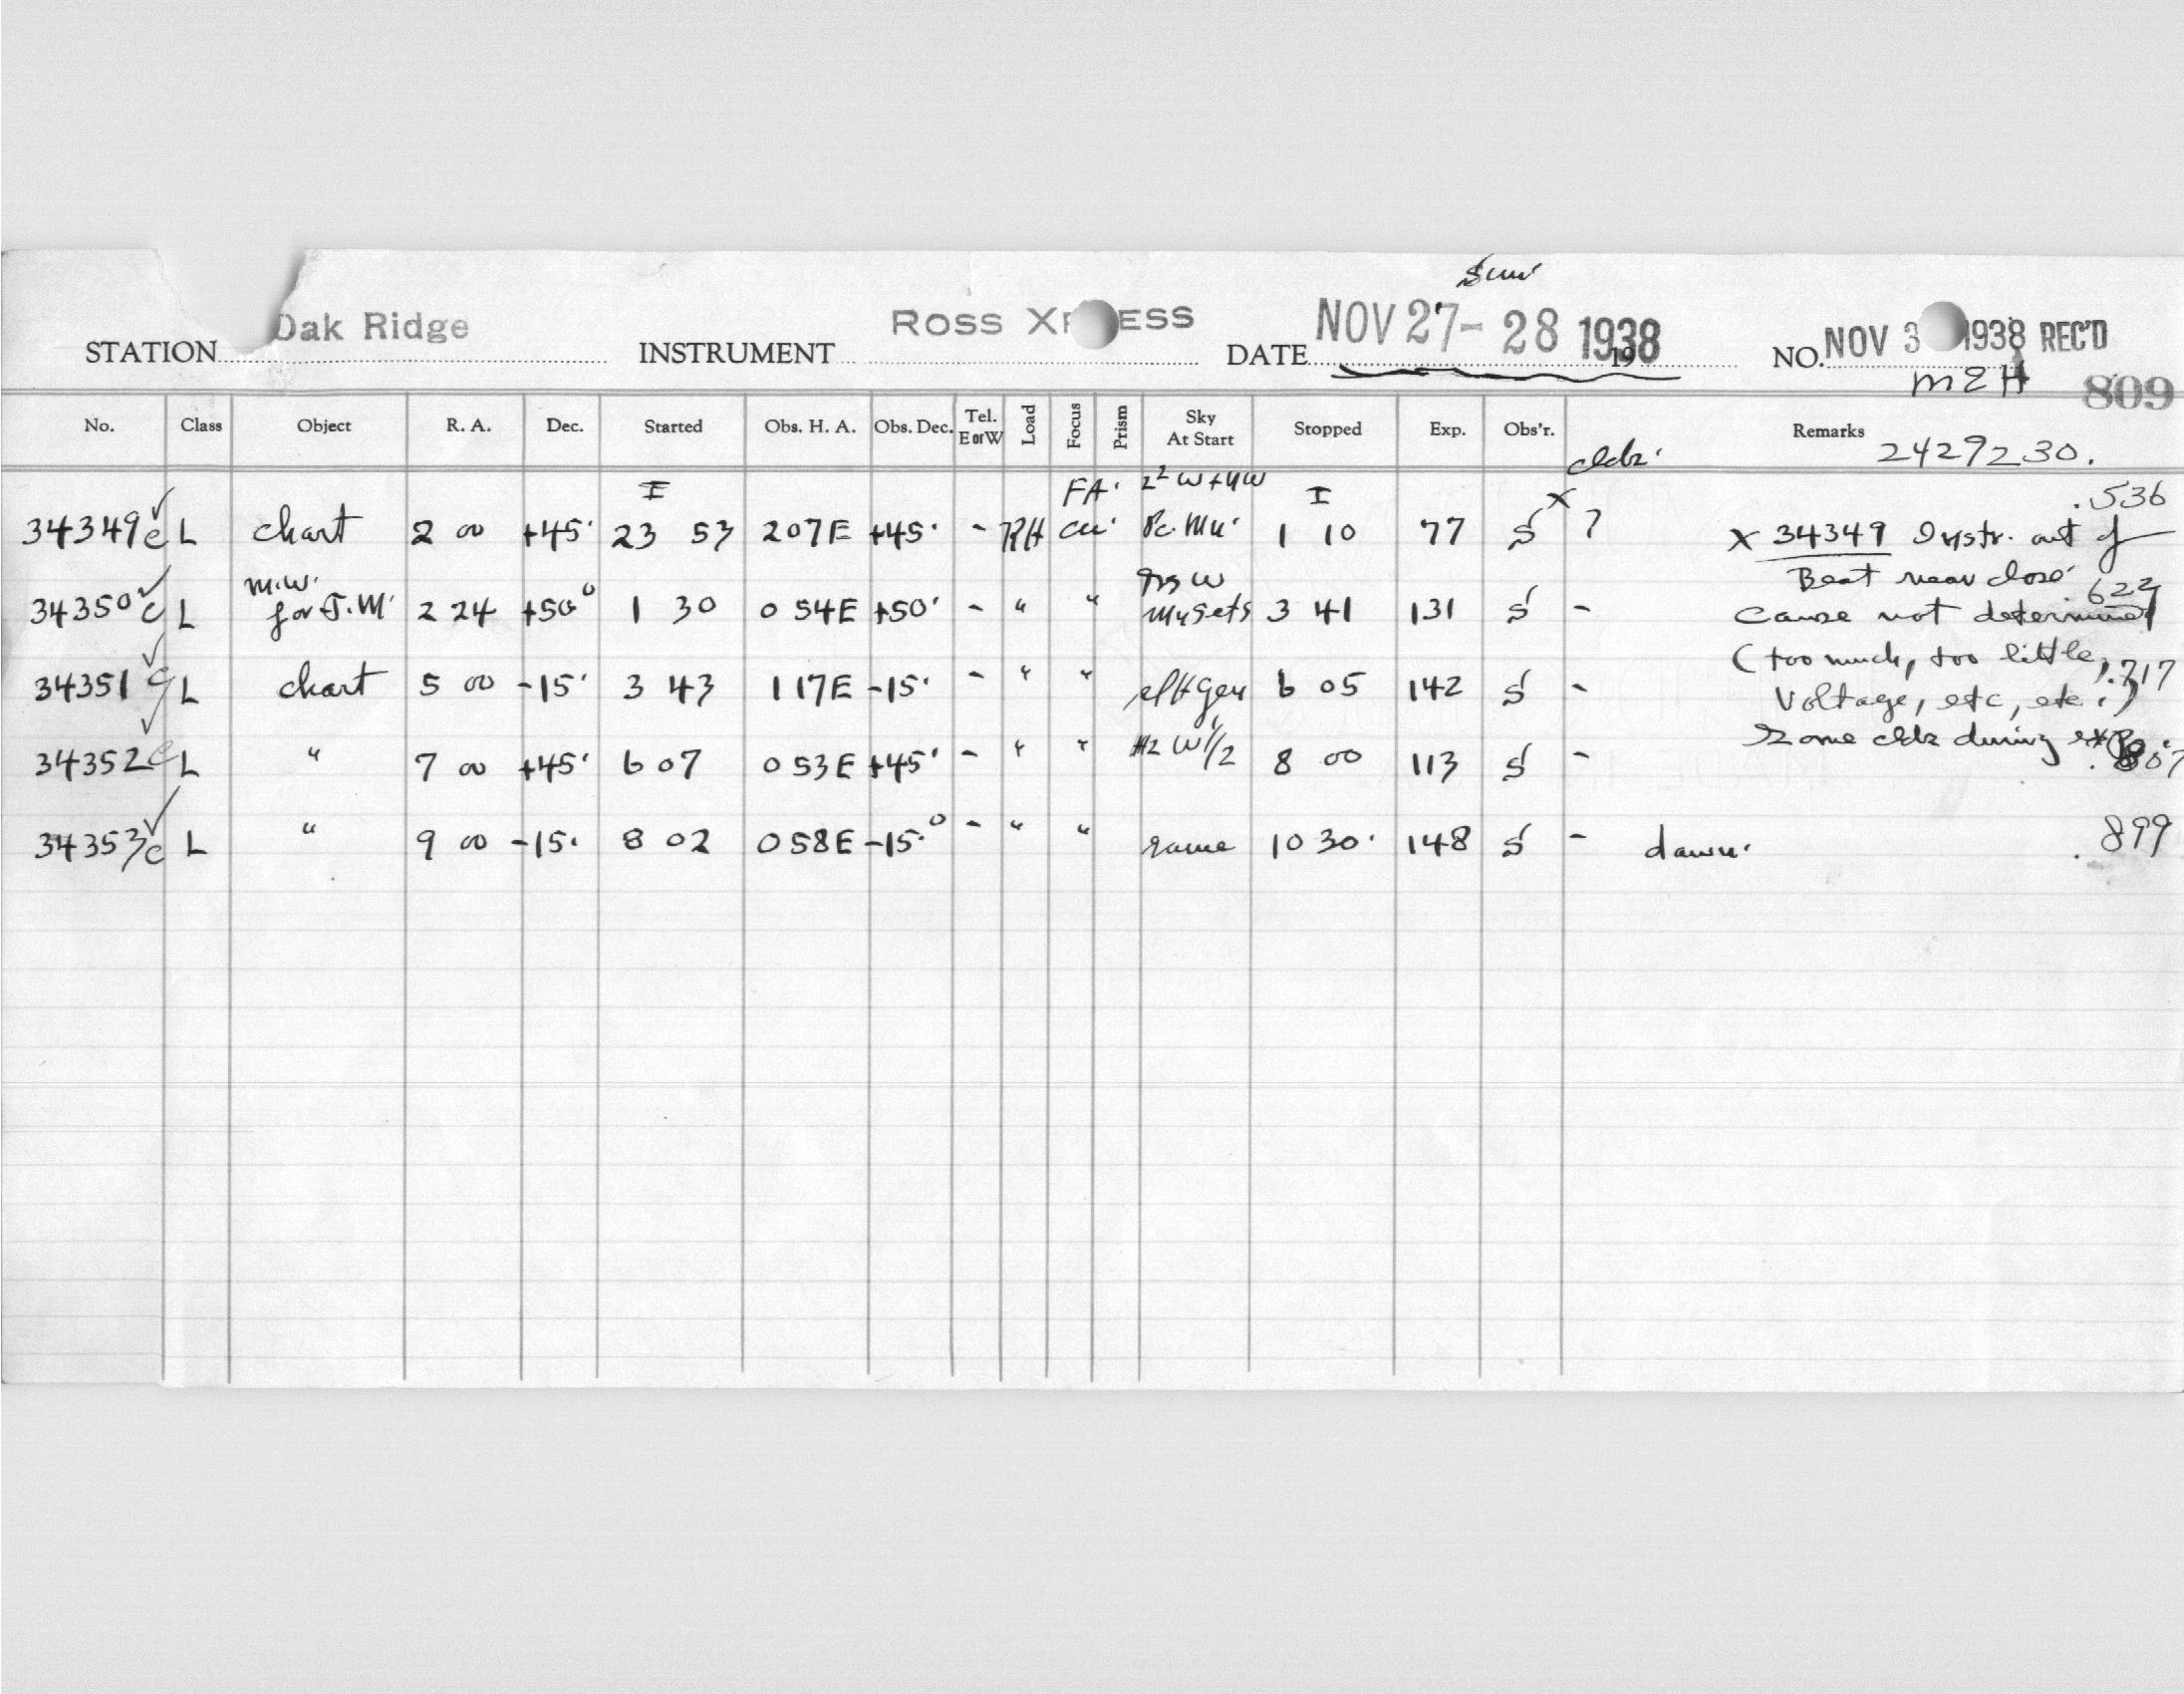 Sun
STATION Oak Ridge INSTRUMENT ROSS X ESS DATE NOV 27-28 1938 19 NO. NOV 3 1938 REC'D
MEH 809
No. Class Object R. A. Dec. Started Obs. H. A. Obs. Dec. Tel. E or W Load Focus Prism Sky At Start Stopped Exp. Obs'r. Remarks
cldz. 2429230.
I FA. 2² W + 4W I X .536
34349 c L chart 2 00 +45. 23 53 2 07E +45. - RH cu. 1 10 77 S ? X 34349 Instr. out of
M.W. W Beat near close. .622
34350 c L for J.M. 2 24 +50° 1 30 0 54E +50. - " " 3 41 131 S - Cause not determined
34351 c L chart 5 00 -15. 3 43 1 17E -15. - " " 6 05 142 S - (too much, too little, .717
Voltage, etc, etc.)
34352 c L " 7 00 +45. 6 07 0 53E +45. - " " #2 W 1/2 8 00 113 S - Some cldz during exp.
34353 c L " 9 00 -15. 8 02 0 58E -15.° - " " same 10 30. 148 S - dawn. .899